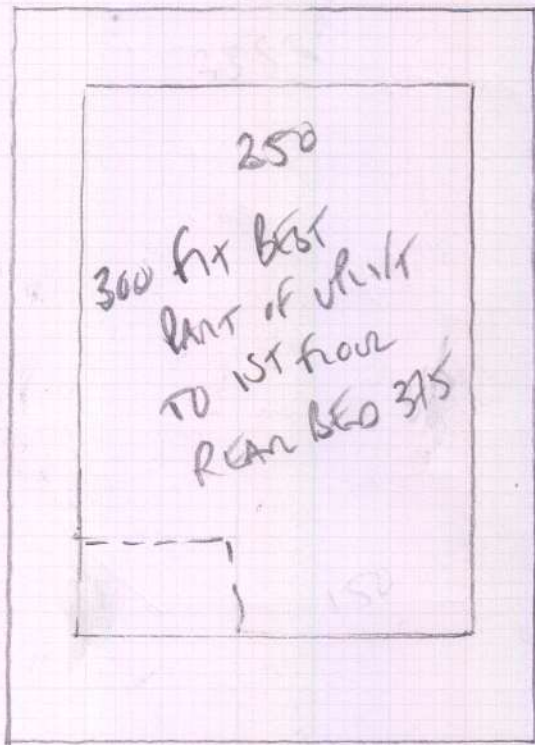 250
300 FIX BEST
PART OF UPLIFT
TO 1ST FLOOR
REAR BED 375
150